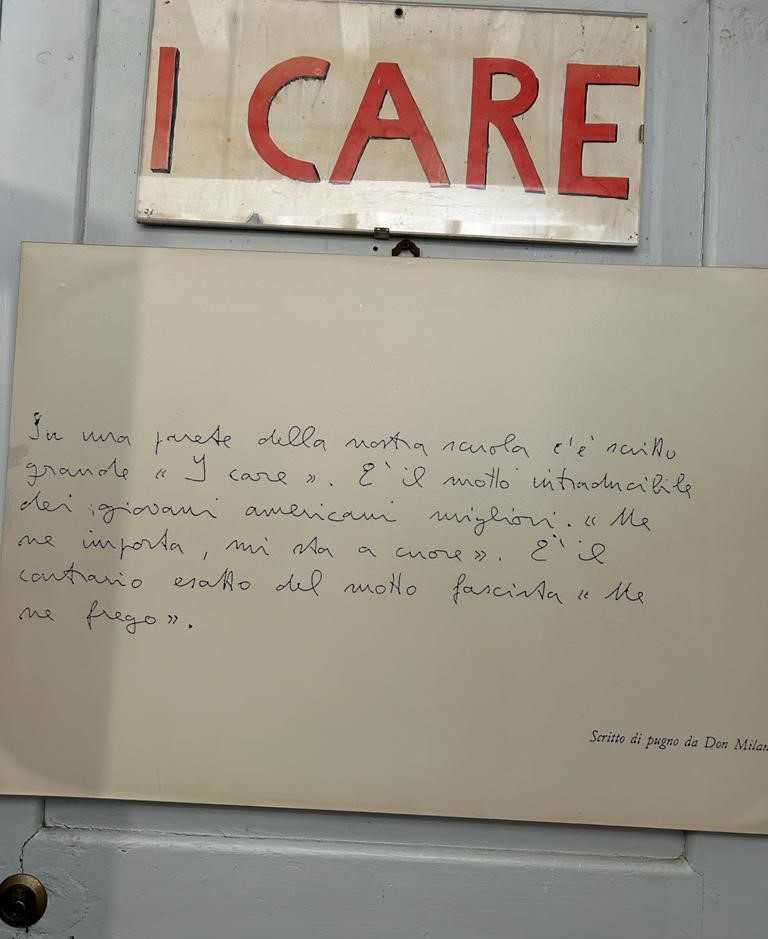 I CARE
Su una parete della nostra scuola c'è scritto
grande « I care ». E' il motto intraducibile
dei giovani americani migliori. « Me
ne importa, mi sta a cuore ». E' il
contrario esatto del motto fascista « Me
ne frego ».
Scritto di pugno da Don Milan